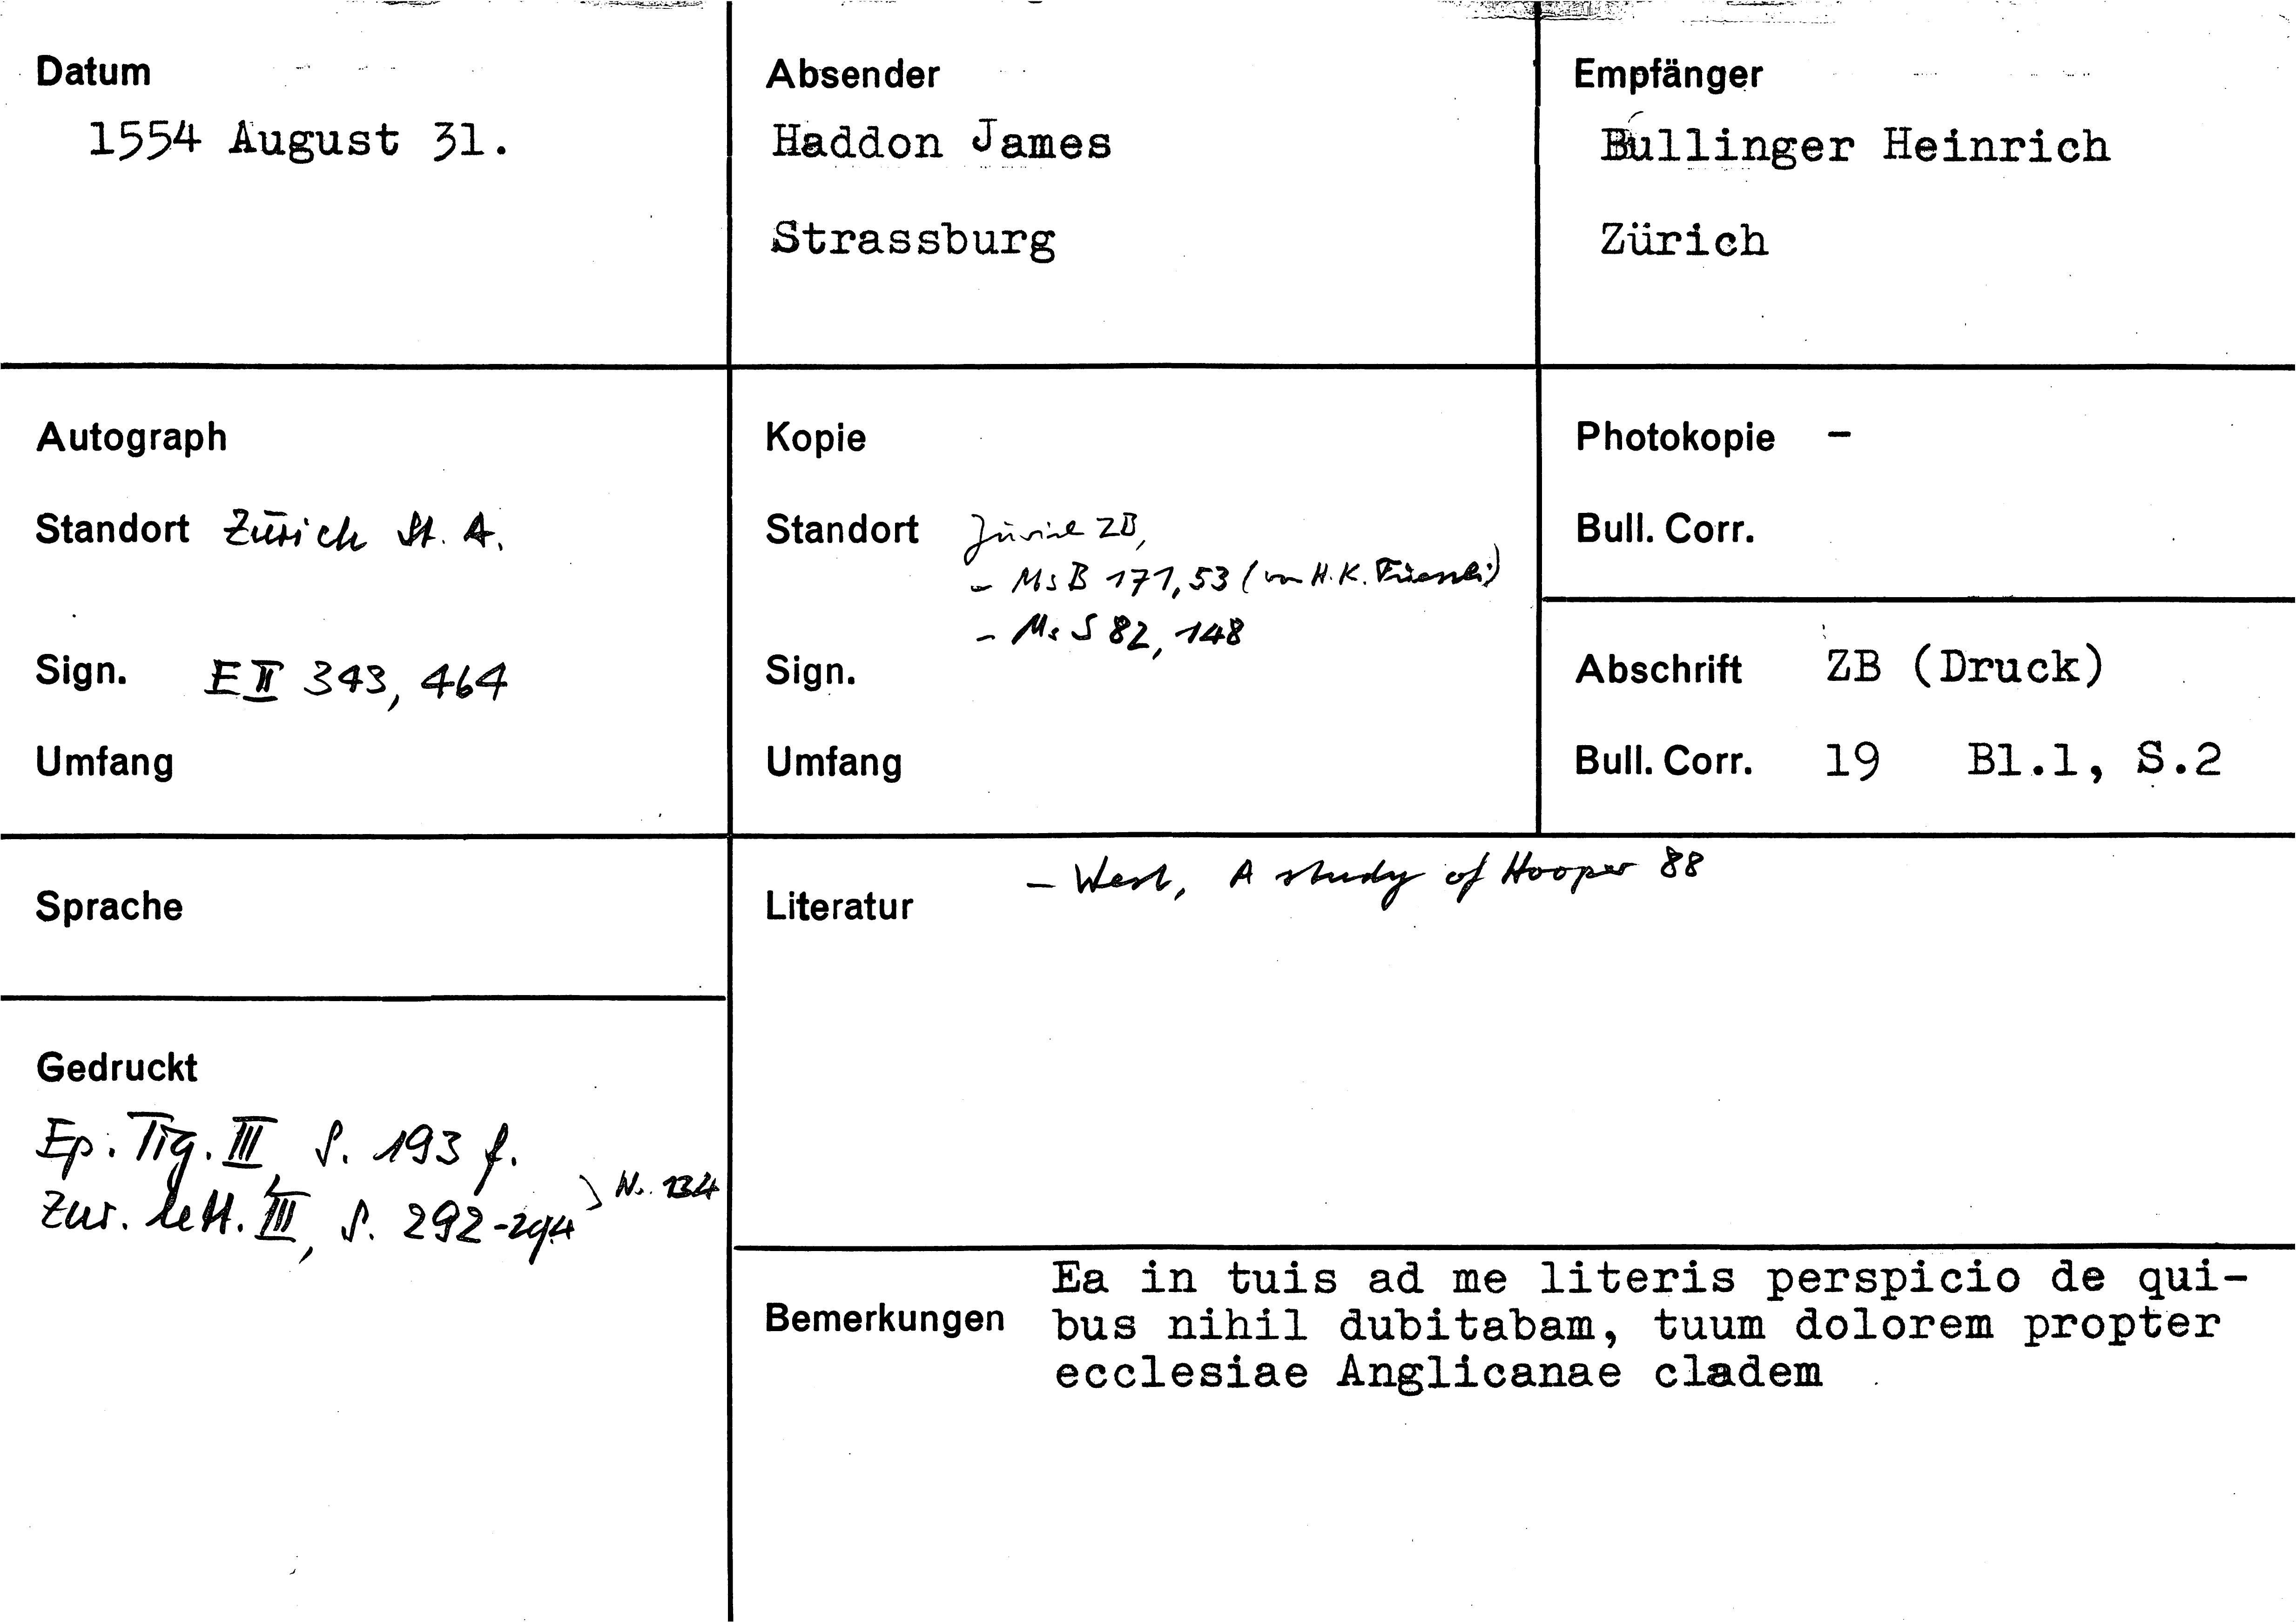 Datum
1554 August 31.
Absender
Haddon James
Strassburg
Empfänger
Bullinger Heinrich
Zürich
Autograph
Standort Zürich St. A.
Sign. E II 343, 464
Umfang
Kopie
Standort Zürich ZB,
- Ms B 171, 53 (von H.K.
- Ms S 82, 148
Sign.
Umfang
Photokopie -
Bull. Corr.
Abschrift ZB (Druck)
Bull. Corr. 19 Bl.1, S.2
Sprache
Literatur - West, A study of Hooper 88
Gedruckt
Ep. Tig. III, S. 193 f.
Zur. lett. III, S. 292-294 } N. 134
Bemerkungen
Ea in tuis ad me literis perspicio de qui-
bus nihil dubitabam, tuum dolorem propter
ecclesiae Anglicanae cladem